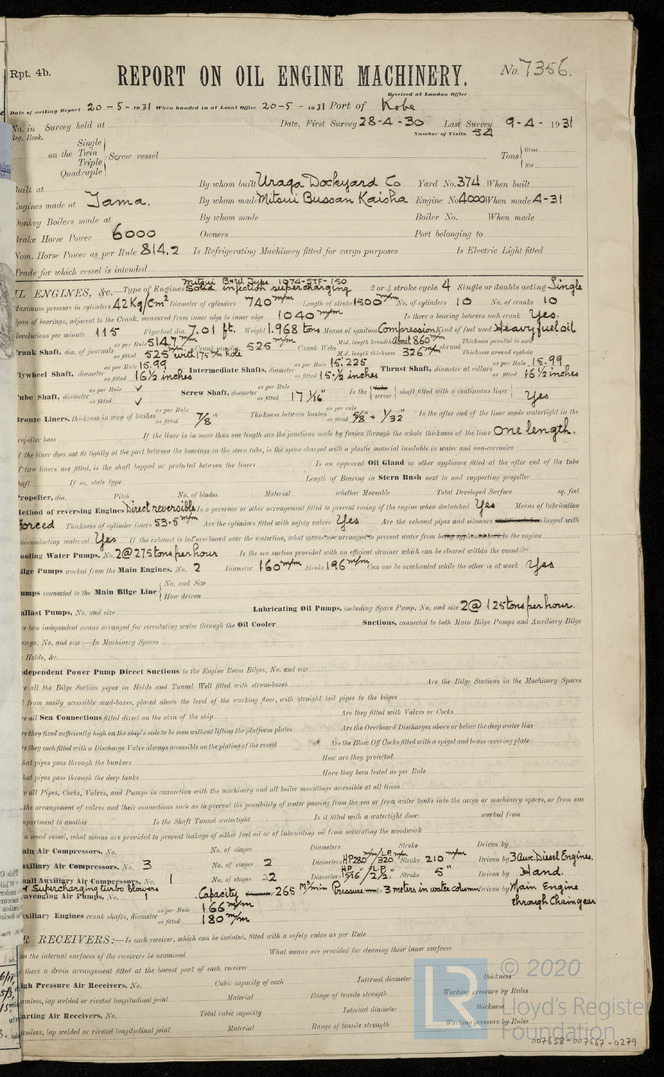 Rpt. 4b.
REPORT ON OIL ENGINE MACHINERY.
No. 7356.
Received at London Office
Date of writing Report 20-5-1931 When handed in at Local Office 20-5-1931 Port of Kobe
No. in Survey held at Date, First Survey 28-4-30 Last Survey 9-4-1931
Reg. Book. Number of Visits 54
on the Single Twin Triple Quadruple Screw vessel Tons Gross Net
Built at By whom built Uraga Dockyard Co Yard No. 374 When built
Engines made at Tama. By whom made Mitsui Bussan Kaisha Engine No. 4000 When made 4-31
Donkey Boilers made at By whom made Boiler No. When made
Brake Horse Power 6000 Owners Port belonging to
Nom. Horse Power as per Rule 814.2 Is Refrigerating Machinery fitted for cargo purposes Is Electric Light fitted
Trade for which vessel is intended
OIL ENGINES, &c. Type of Engines Solid injection supercharging 2 or 4 stroke cycle 4 Single or double acting Single
Maximum pressure in cylinders 42 Kg/Cm² Diameter of cylinders 740 m/m Length of stroke 1500 m/m No. of cylinders 10 No. of cranks 10
Span of bearings, adjacent to the Crank, measured from inner edge to inner edge 1040 m/m Is there a bearing between each crank Yes.
Revolutions per minute 115 Flywheel dia. 7.01 ft. Weight 1.968 tons Means of ignition Compression Kind of fuel used Heavy fuel oil
Crank Shaft, dia. of journals as per Rule 514.7 m/m as fitted 525 with 175 m/m hole Crank pin dia. 525 m/m Crank Webs Mid. length breadth About 860 m/m Mid. length thickness 326 m/m Thickness parallel to axis Thickness around eyehole
Flywheel Shaft, diameter as per Rule 15.99 as fitted 16½ inches Intermediate Shafts, diameter as per Rule 15.225 as fitted 15½ inches Thrust Shaft, diameter at collars as per Rule 15.99 as fitted 16½ inches
Tube Shaft, diameter as per Rule ✓ as fitted ✓ Screw Shaft, diameter as per Rule as fitted 17 1/16" Is the screw shaft fitted with a continuous liner Yes
Bronze Liners, thickness in way of bushes as per Rule as fitted 7/8" Thickness between bushes as per rule as fitted 5/8" + 1/32" Is the after end of the liner made watertight in the
propeller boss If the liner is in more than one length are the junctions made by fusion through the whole thickness of the liner One length.
If the liner does not fit tightly at the part between the bearings in the stern tube, is the space charged with a plastic material insoluble in water and non-corrosive
If two liners are fitted, is the shaft lapped or protected between the liners Is an approved Oil Gland or other appliance fitted at the after end of the tube
shaft If so, state type Length of Bearing in Stern Bush next to and supporting propeller
Propeller, dia. Pitch No. of blades Material whether Moveable Total Developed Surface sq. feet
Method of reversing Engines Direct reversible Is a governor or other arrangement fitted to prevent racing of the engine when declutched Yes Means of lubrication
Forced Thickness of cylinder liners 53.5 m/m Are the cylinders fitted with safety valves Yes Are the exhaust pipes and silencers lagged with
non-conducting material Yes If the exhaust is led overboard near the waterline, what means are arranged to prevent water from to the engine
Cooling Water Pumps, No. 2 @ 275 tons per hour Is the sea suction provided with an efficient strainer which can be cleared within the vessel
Bilge Pumps worked from the Main Engines, No. 2 Diameter 160 m/m Stroke 196 m/m Can one be overhauled while the other is at work Yes
Pumps connected to the Main Bilge Line No. and Size
How driven
Ballast Pumps, No. and size Lubricating Oil Pumps, including Spare Pump, No. and size 2 @ 125 tons per hour.
Are two independent means arranged for circulating water through the Oil Cooler Suctions, connected to both Main Bilge Pumps and Auxiliary Bilge
Pumps, No. and size:—In Machinery Spaces
In Holds, &c.
Independent Power Pump Direct Suctions to the Engine Room Bilges, No. and size
Are all the Bilge Suction pipes in Holds and Tunnel Well fitted with strum-boxes Are the Bilge Suctions in the Machinery Spaces
led from easily accessible mud-boxes, placed above the level of the working floor, with straight tail pipes to the bilges
Are all Sea Connections fitted direct on the skin of the ship Are they fitted with Valves or Cocks
Are they fixed sufficiently high on the ship's side to be seen without lifting the platform plates Are the Overboard Discharges above or below the deep water line
Are they each fitted with a Discharge Valve always accessible on the plating of the vessel Are the Blow Off Cocks fitted with a spigot and brass covering plate
What pipes pass through the bunkers How are they protected
What pipes pass through the deep tanks Have they been tested as per Rule
Are all Pipes, Cocks, Valves, and Pumps in connection with the machinery and all boiler mountings accessible at all times
Is the arrangement of valves and their connections such as to prevent the possibility of water passing from the sea or from water tanks into the cargo or machinery spaces, or from one
compartment to another Is the Shaft Tunnel watertight Is it fitted with a watertight door worked from
If a wood vessel, what means are provided to prevent leakage of either fuel oil or of lubricating oil from saturating the woodwork
Main Air Compressors, No. No. of stages Diameters Stroke Driven by
Auxiliary Air Compressors, No. 3 No. of stages 2 Diameters HP 280 m/m / L.P. 320 Stroke 210 m/m Driven by 3 Aux. Diesel Engines.
Small Auxiliary Air Compressors, No. 1 No. of stages 2 Stroke 5" Driven by Hand.
Supercharging turbo blowers
Scavenging Air Pumps, No. 1 Capacity 265 M³/min Pressure 3 meters in water column Driven by Main Engine through Chain gear
Auxiliary Engines crank shafts, diameter as per Rule 166 m/m as fitted 180 m/m
AIR RECEIVERS:—Is each receiver, which can be isolated, fitted with a safety valve as per Rule
Can the internal surfaces of the receivers be examined What means are provided for cleaning their inner surfaces
Is there a drain arrangement fitted at the lowest part of each receiver
High Pressure Air Receivers, No. Cubic capacity of each Internal diameter thickness
Seamless, lap welded or riveted longitudinal joint Material Range of tensile strength Working pressure by Rules
Starting Air Receivers, No. Total cubic capacity Internal diameter thickness
Seamless, lap welded or riveted longitudinal joint Material Range of tensile strength Working pressure by Rules
LR
© 2020
Lloyd's Register
Foundation
007658-007667-0279